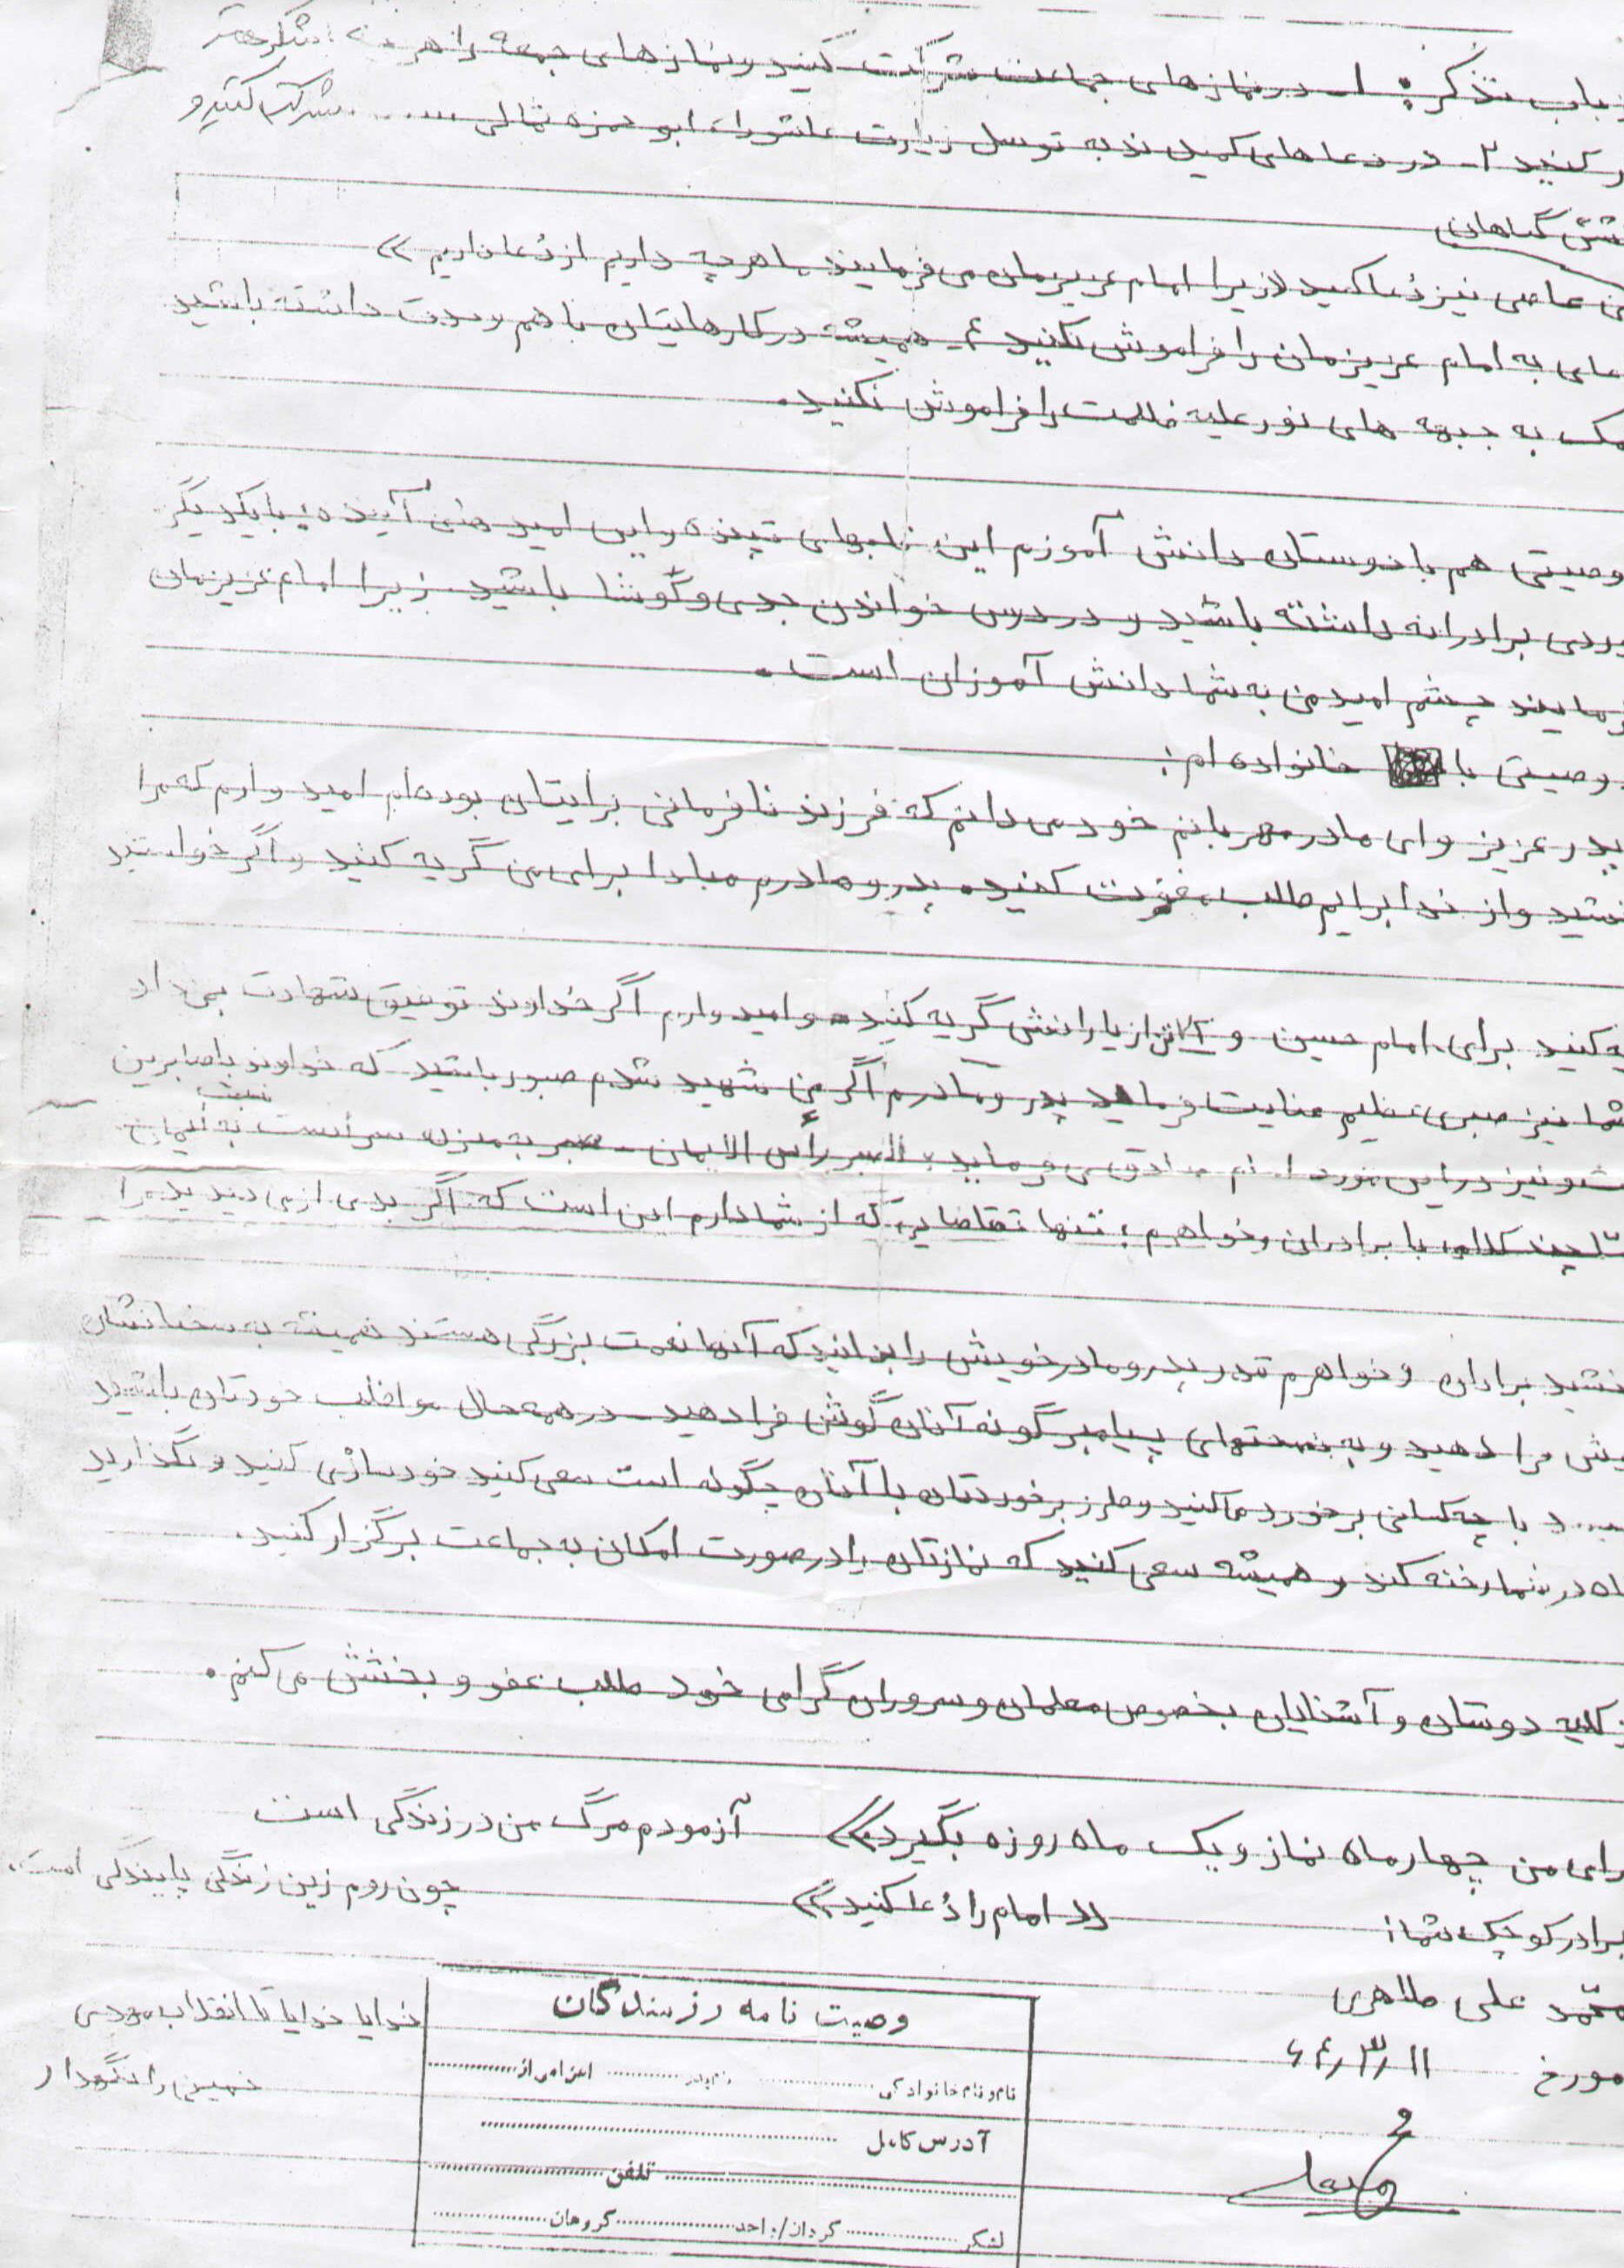 باب تذکر: ۱ـ در نمازهای جماعت شرکت کنید و نمازهای جمعه را هر
کنید ۲ـ در دعاهای کمیل ندبه توسل زیارت عاشورا، ابو حمزه ثمالی ...... شرکت کنید و
گناهان
عاصی نیز دُعا کنید زیرا امام عزیزمان می فرمایند ما هرچه داریم از دُعا داریم»
به امام عزیزمان را فراموش نکنید ۴ـ همیشه در کارهایتان با هم وحدت داشته باشید
به جبهه های نور علیه ظلمت را فراموش نکنید.
وصیتی هم با دوستان دانش آموزم این این امید های آینده: با یکدیگر
برادرانه داشته باشید و در درس خواندن جدی و کوشا باشید. زیرا امام عزیزمان
چشم امید من به شما دانش آموزان است.
وصیتی با خانواده ام:
پدر عزیز و ای مادر مهربانم خود می دانم که فرزند نافرمانی برایتان بوده ام امیدوارم که مرا
و از خدا برایم طلب مغفرت کنید. پدر و مادرم مبادا برای من گریه کنید و اگر خواستید
کنید برای امام حسین و یارانش گریه کنید. و امیدوارم اگر خداوند توفیق شهادت به من داد
شما نیز صبری عظیم عنایت فرماید پدر و مادرم اگر من شهید شدم صبور باشید که خداوند با صابرین
نیز در این مورد امام صادق می فرماید: الصبر رأس الایمان ـ صبر به منزله سر است نسبت به ایمان
چند کلام با برادران و خواهرم: تنها تقاضایی که از شما دارم این است که اگر بدی از من دیدید مرا
برادران و خواهرم قدر پدر و مادر خویش را بدانید که آنها نعمت بزرگی هستند همیشه به سخنانشان
فرا دهید و به نصیحتهای پیامبر گونه آنان گوش فرا دهید ـ در همه حال مواظب خودتان باشید
با چه کسانی برخورد می کنید و طرز برخوردتان با آنان چگونه است سعی کنید خودسازی کنید و نگذارید
در شما رخنه کند و همیشه سعی کنید که نمازتان را در صورت امکان به جماعت برگزار کنید.
کلیه دوستان و آشنایان بخصوص معلمان و سروران گرامی خود طلب عفو و بخشش می کنم.
برای من چهار ماه نماز و یک ماه روزه بگیرد» آزمودم مرگ من در زندگی است
برادر کوچک شما: «امام را دُعا کنید» چون روم زین زندگی پایندگی است.
محمّد علی طاهری
مورخ ۶۴٫۳٫۱۱
وصیت نامه رزمندگان
نام و نام خانوادگی ........ نام پدر ........ اعزامی از ........
آدرس کامل ........
تلفن ........
لشکر ........ گردان/واحد ........ گروهان ........
خدایا خدایا تا انقلاب مهدی
خمینی را نگهدار